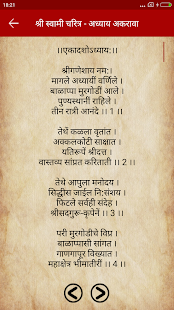 18:21
श्री स्वामी चरित्र - अध्याय अकरावा
।।एकादशोऽध्याय:।।
श्रीगणेशाय नम:।
मागले अध्यायीं वर्णिले ।
बाळाप्पा मुरगोडीं आले ।
पुण्यस्थानीं राहिले ।
तीन रात्री आनंदे ।। 1 ।।
तेथे कळला वृतांत ।
अक्कलकोटी साक्षात ।
यतिरुपें श्रीदत्त ।
वास्तव्य सांप्रत करिताती ।। 2 ।।
तेथे आपुला मनोदय ।
सिद्धीस जाईल नि:संशय ।
फिटले सर्वही संदेह ।
श्रीसदगुरू-कृपेनें ।। 3 ।।
परी मुरगोडीचे विप्र ।
बाळाप्पासी सांगत ।
गाणगापूर विख्यात ।
महाक्षेत्र भीमातीरीं ।। 4 ।।